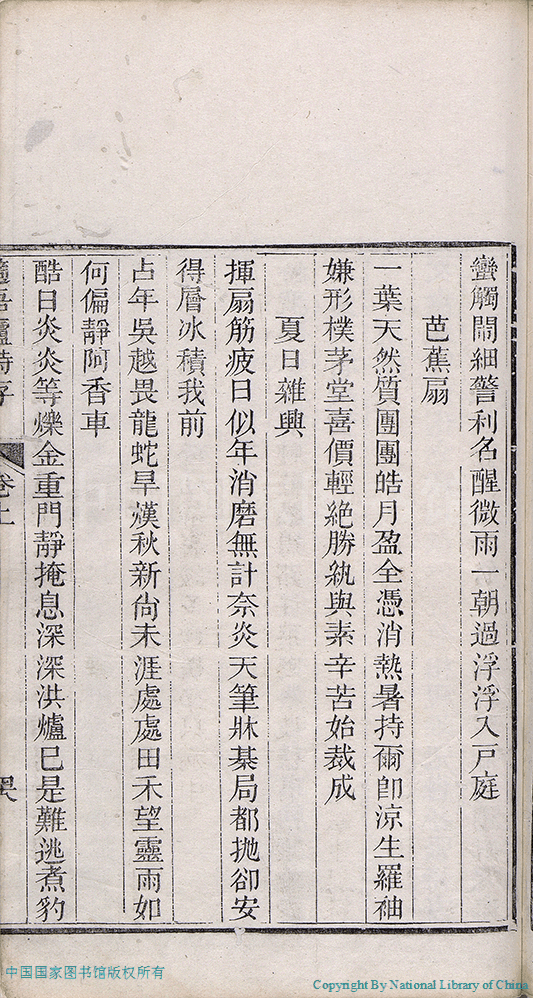 蠻觸鬧細響利名醒微雨一朝過浮浮入戸庭
芭蕉扇
一葉天然質團團皓月盈全憑消熱暑持爾卽涼生羅䄂
嫌形樸茅堂喜價輕絶勝紈與素辛苦始裁成
夏日雜興
揮扇筋疲日似年消磨無計奈炎天筆牀棊局都抛卻安
得層冰積我前
占年吳越畏龍蛇旱熯秋新尙未涯處處田禾望靈雨如
何偏靜阿香車
酷日炎炎等爍金重門靜掩息深深洪爐巳是難逃煮豹
卷上
中国国家图书馆版权所有
Copyright By National Library of China